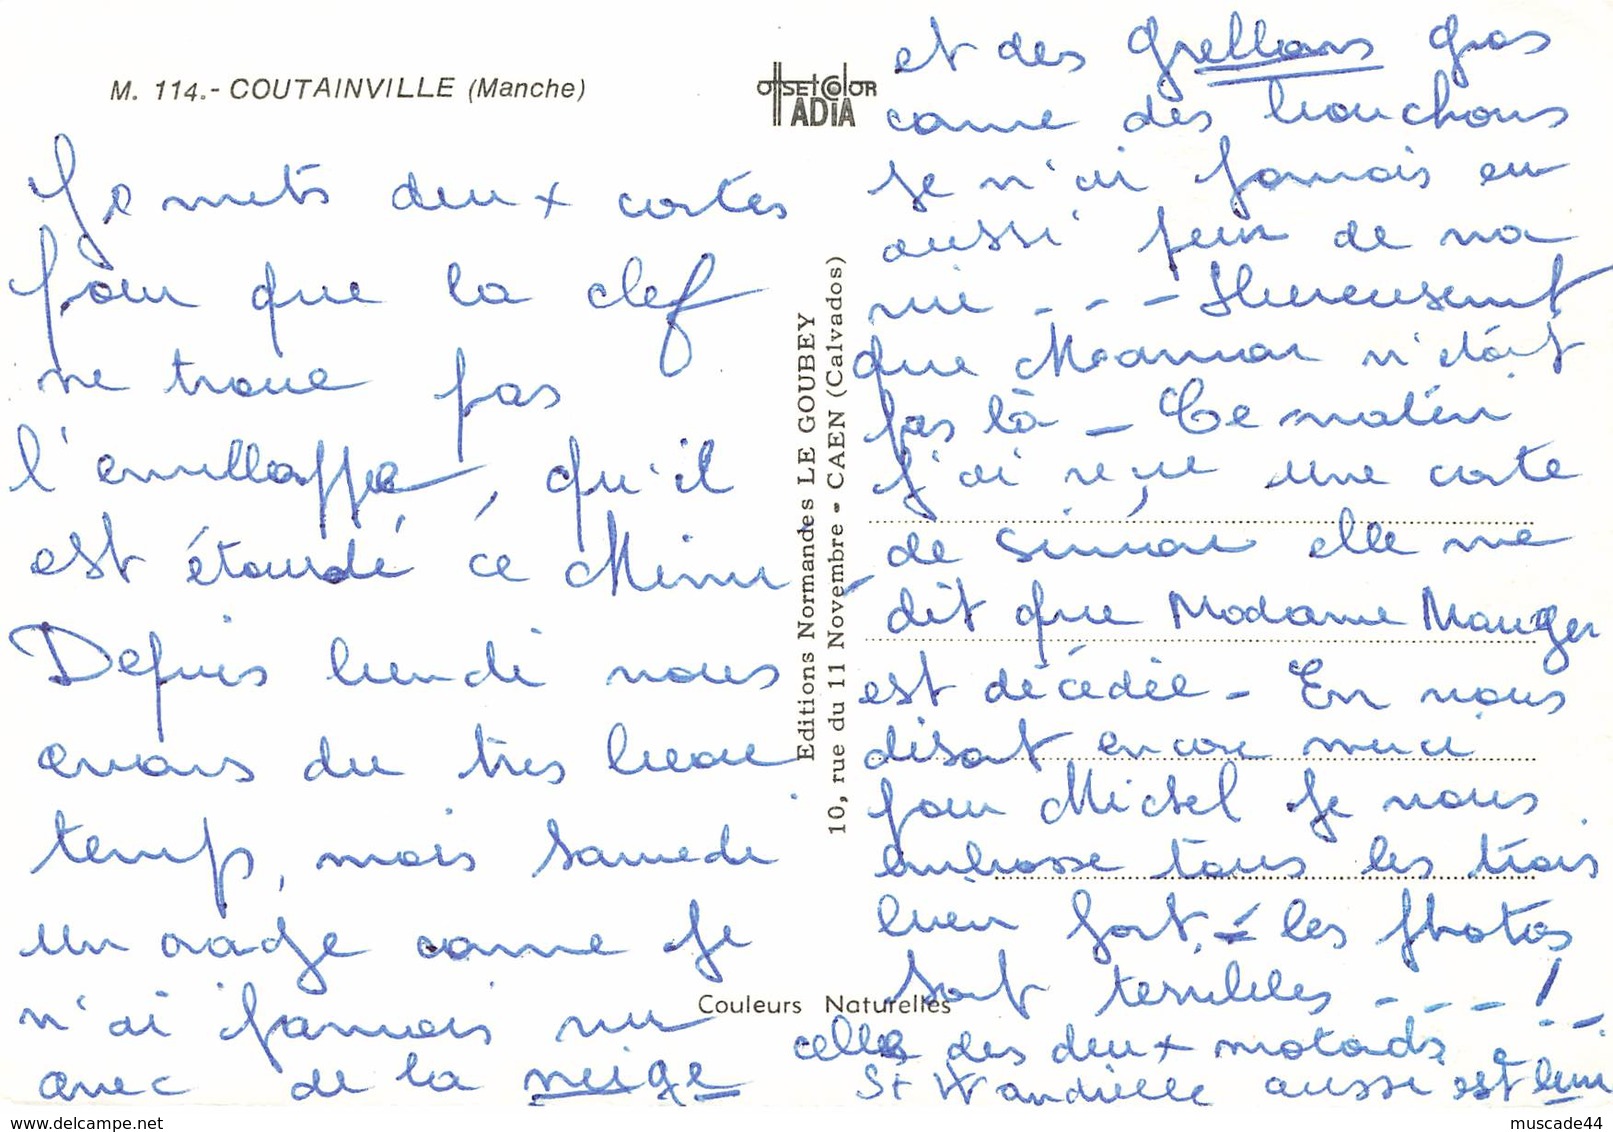 M. 114.- COUTAINVILLE (Manche)
OFFSETCOLOR
IADIA
Je mets deux cartes
pour que la clef
ne troue pas
l'enveloppe, qu'il
est étourdi ce Minu
Depuis lundi nous
avons du très beau
temps, mais Samedi
un orage come je
n'ai jamais vu
avec de la neige
et des Grellons gros
come des bouchons
Je n'ai jamais eu
aussi peur de ma
vie - - - Heureusement
que Maman n'était
pas là - Ce matin
j'ai reçue une carte
de Simone elle me
dit que Madame Mauger
est décédée - En vous
disant encore merci
pour Michel Je vous
embrasse tous les trois
bien fort. - les photos
sont terribles - - - - !
celle des deux motards - - -
St Wandrille aussi est bien
Editions Normandes LE GOUBEY
10, rue du 11 Novembre - CAEN (Calvados)
Couleurs Naturelles
www.delcampe.net
muscade44